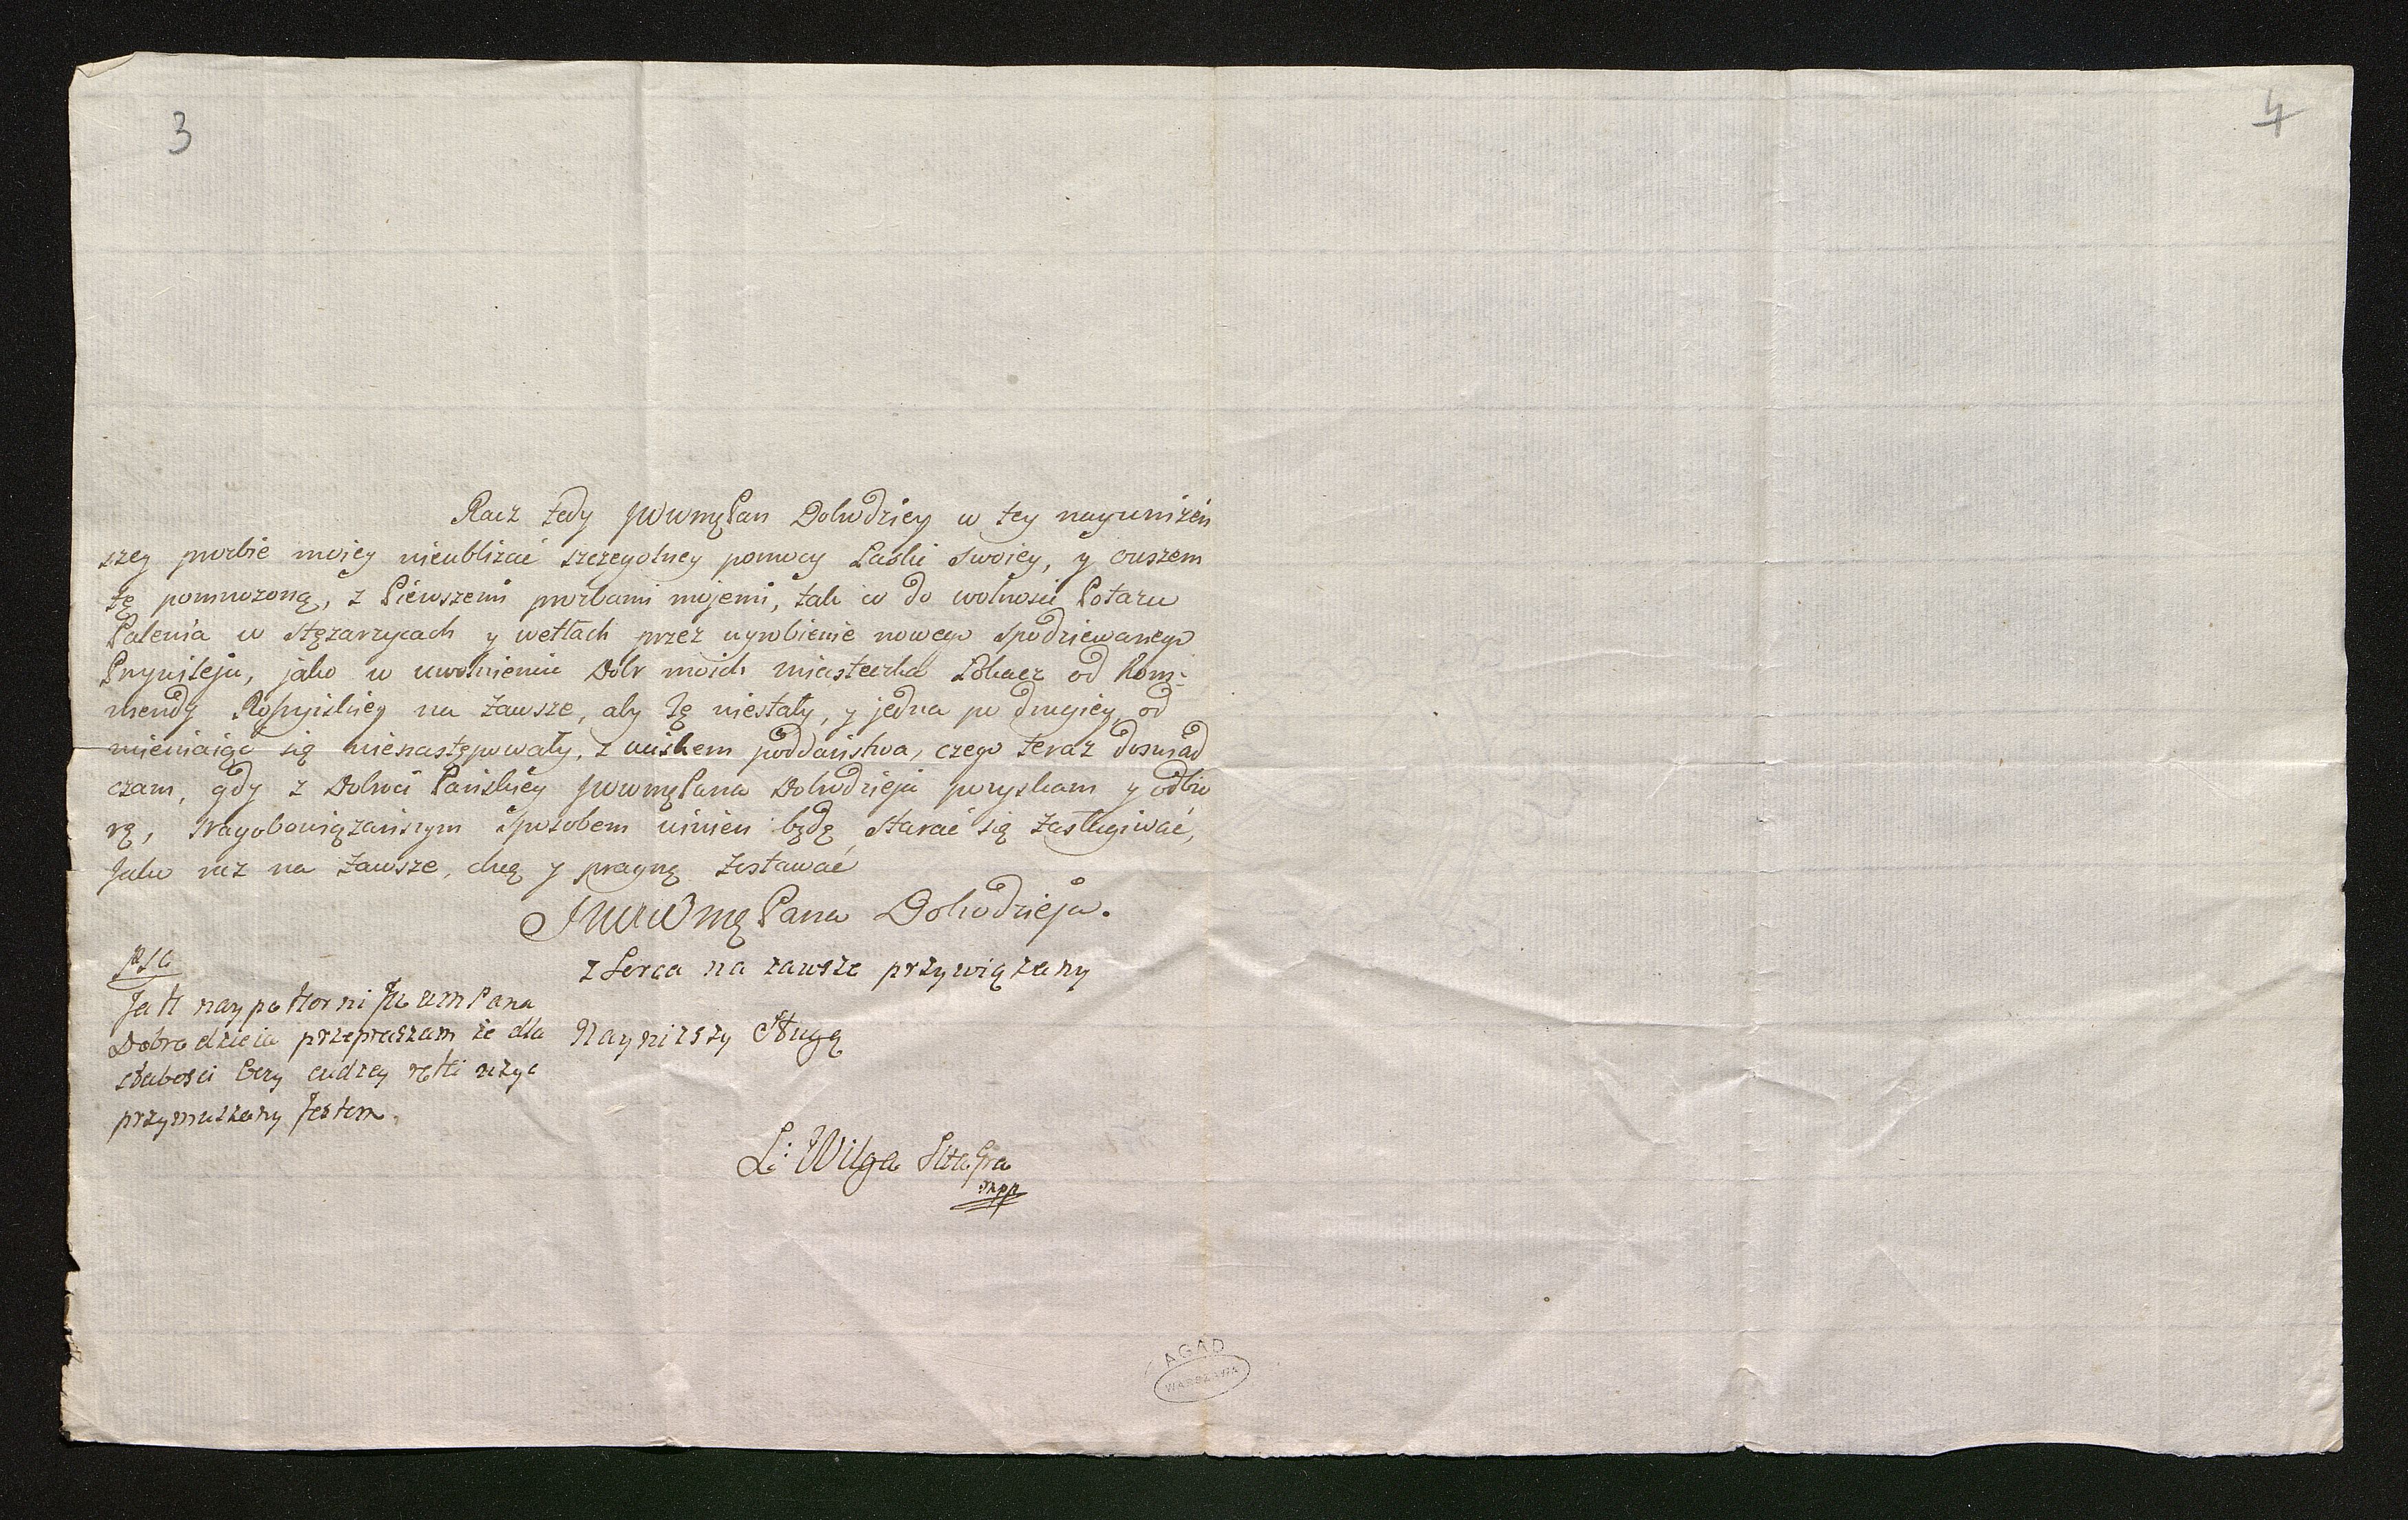 3
4
Racz tedy JWWmęPan Dobrodziey w tey nayuniżeń
szey proźbie moiey nieubliżać szczegolney pomocy Łaski Swoiey, y owszem
tę pomnożoną, z Pierwszemi proźbami mojemi, tak co do wolności Potażu
Palenia w Stężarzycach y wetłach przez wyrobienie nowego Spodziewanego
Prywileju, jako w uwolnieniu Dobr moich miasteczka Łokacz od Kom:
mendy Rossyiskiey na zawsze, aby tę niestały, y jedna po drugiey od
mieniaiąc się nienastępowały, z uciskem poddaństwa, czego teraz doswiad
czam, gdy z Dobroci Pańskiey JWWmęPana Dobrodzieja pozyskam y odbio
rę, Nayobowiązańszym Sposobem winien będę Starać się zasługiwać,
Jako raz na zawsze, chcę y pragnę zostawać
JWWWmę Pana Dobrodzieja.
z Serca na zawsze przywiązany
Nayniższy Sługa
PSa
Jak naypokorni JWWmPana
Dobrodzieia przepraszam że dla
słabości Oczy cudzey ręki użyc
przymuszony Jestem.
L: Wilga
mpp
AGAD
WARSZAWA